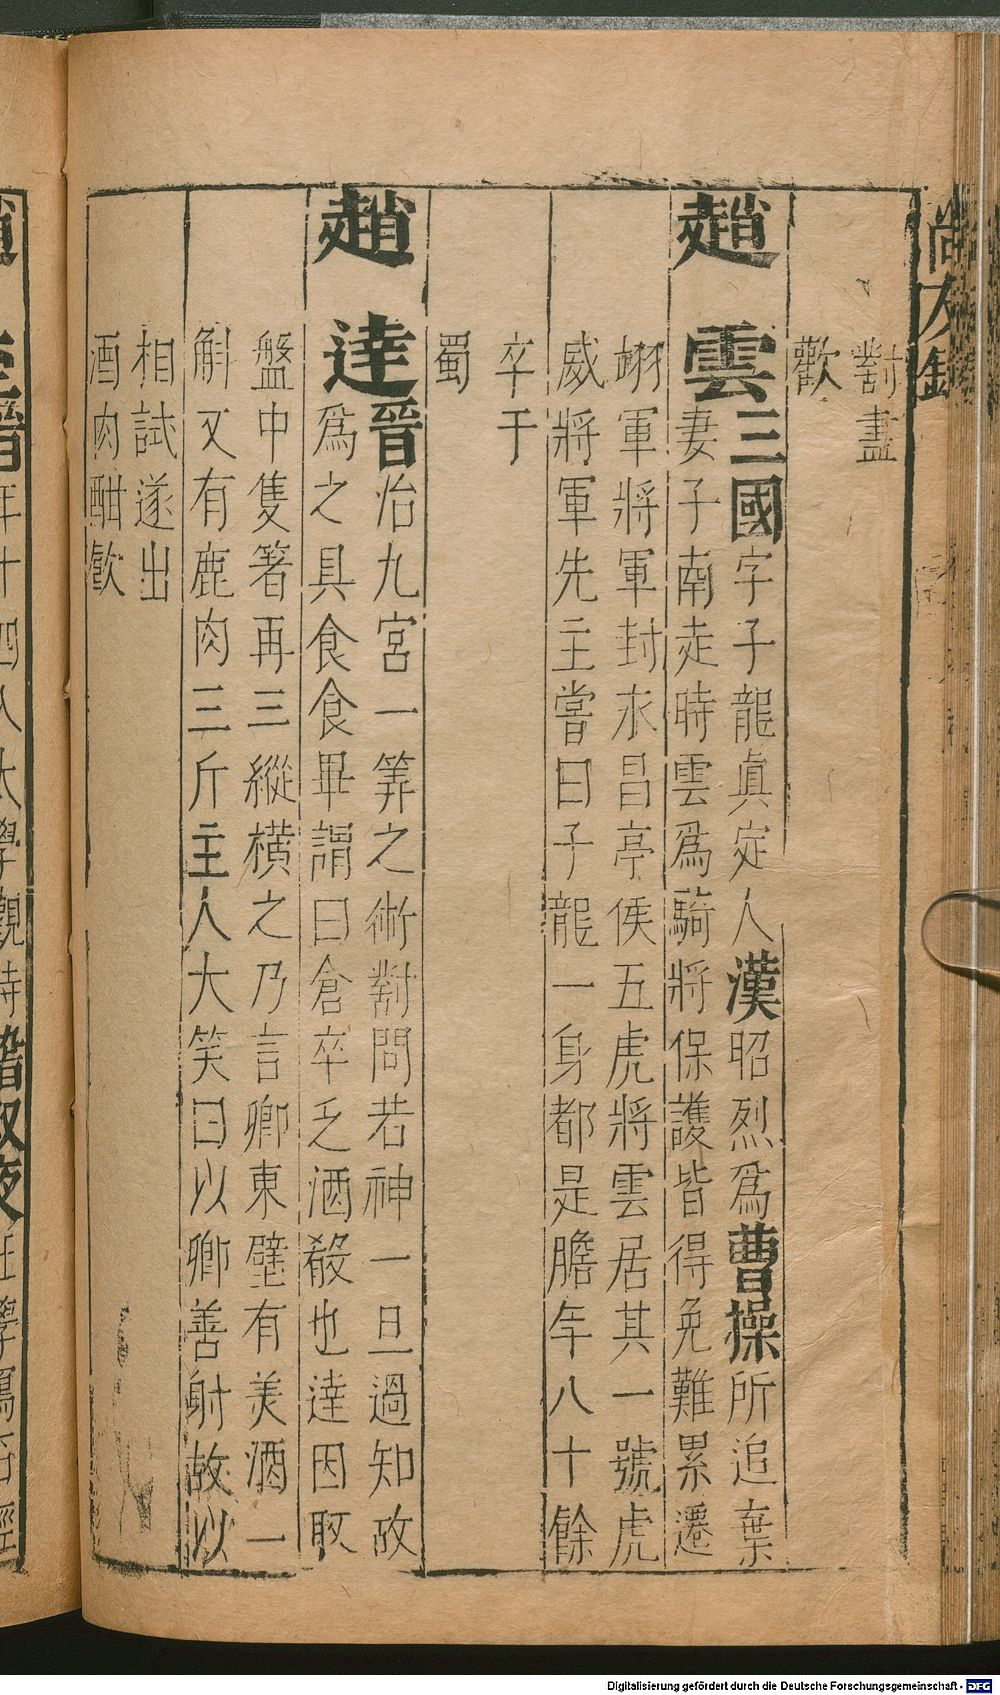 尚友錄
對盡
歡
趙雲三國字子龍眞定人漢昭烈爲曹操所追棄
妻子南走時雲爲騎將保護皆得免難累遷
翊軍將軍封永昌亭侯五虎將雲居其一號虎
威將軍先主嘗曰子龍一身都是膽年八十餘
卒于
蜀
趙達晉治九宮一筭之術對問若神一旦過知故
爲之具食食畢謂曰倉卒乏酒殽也達因取
盤中隻箸再三縱橫之乃言卿東壁有美酒一
斛又有鹿肉三斤主人大笑曰以卿善射故以
相試遂出
酒肉酣歡
年十四入太學觀時嵇叔夜在學寫石經